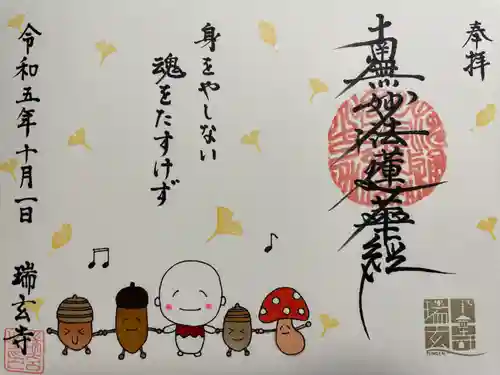 奉拝
南無妙法蓮華経
身をやしない
魂をたすけず
令和五年十月一日
瑞玄寺